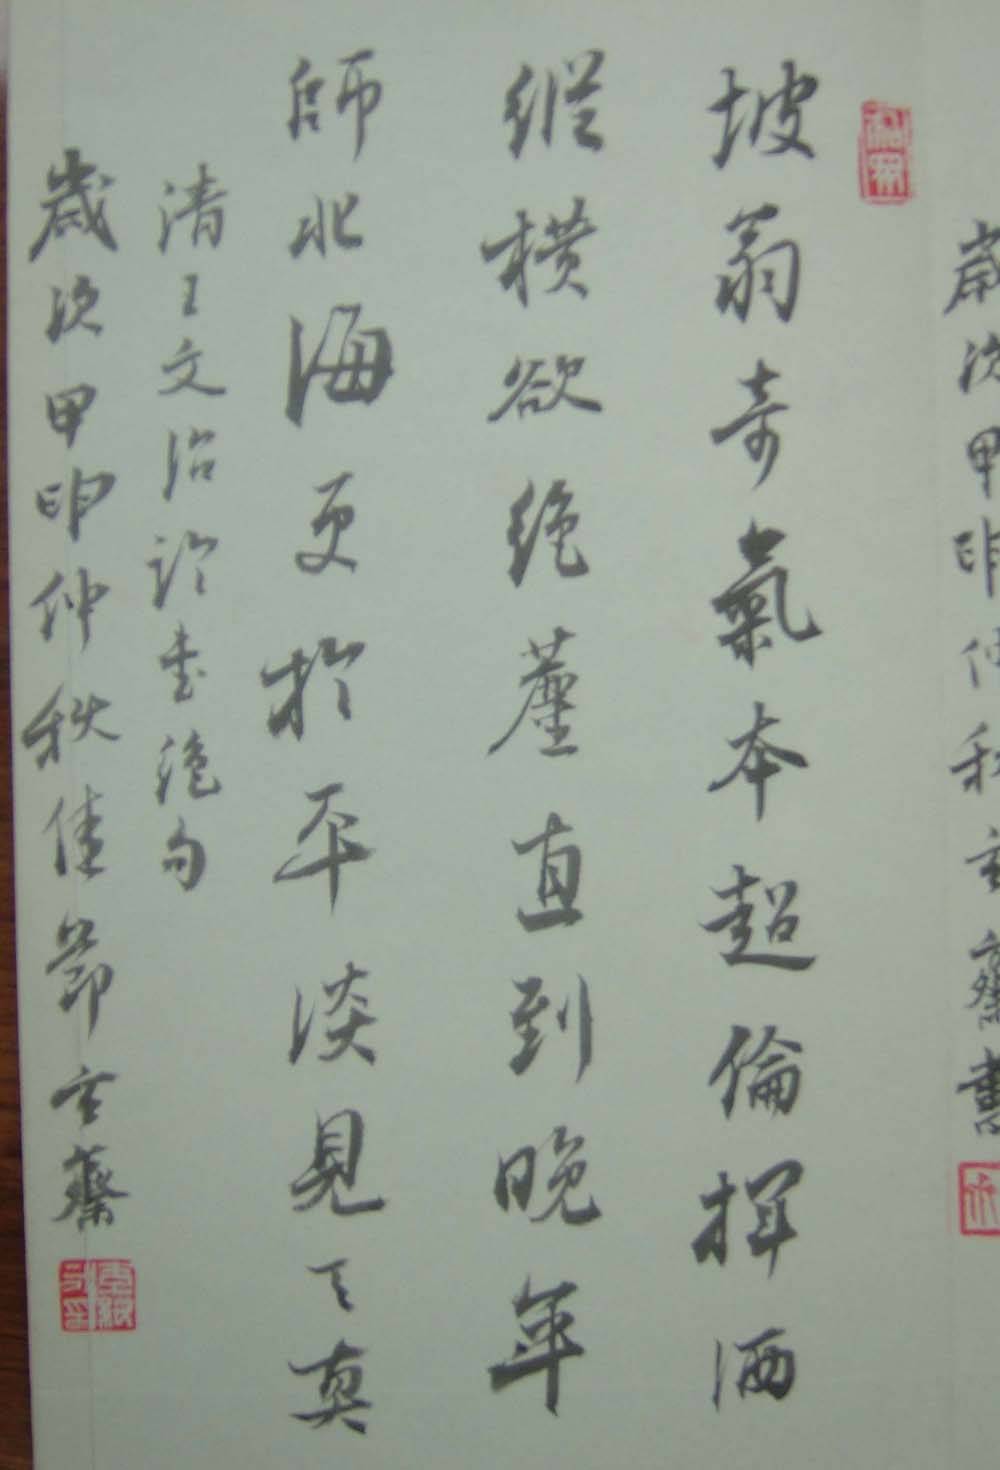 歲次甲申仲秋玄齋書
坡翁奇氣本超倫揮洒
縱橫欲絕塵直到晚年
師北海更於平淡見天真
清王文治論書絕句
歲次甲申仲秋佳節玄齋